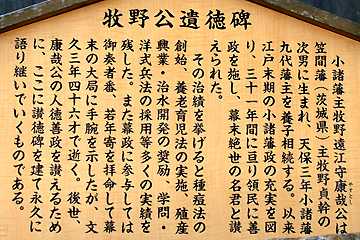 牧野公遺徳碑
小諸藩主牧野遠江守康哉公は
笠間藩（茨城県）主牧野貞幹の
次男に生まれ、天保三年小諸藩
九代藩主を養子相続する。以来
江戸末期の小諸藩政の充実を図
り、三十一年間に亘り領民に善
政を施し、幕末絶世の名君と讃
えられた。
その治績を挙げると種痘法の
創始、養老育児法の実施、殖産
興業・治水開発の奨励　学問・
洋式兵法の採用等多くの実績を
残した。また幕政に参与しては
御奏者番、若年寄を拝命して幕
末の大局に手腕を示したが、文
久三年四十六才で逝く。後世、
康哉公の人徳善政を讃えるため
に、ここに讃徳碑を建て永久に
語り継いでいくものである。